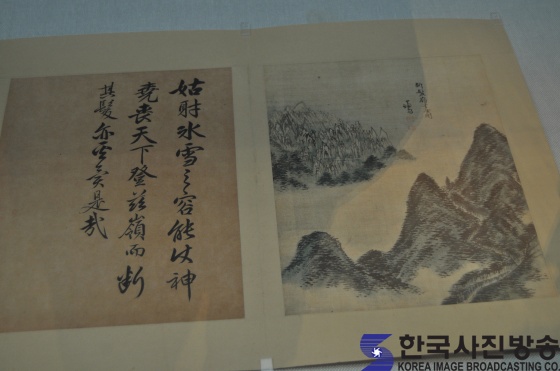 姑射氷雪之容能使神
堯喪天下登玆嶺而斷
髮亦是哉
한국사진방송
KOREA IMAGE BROADCASTING CO